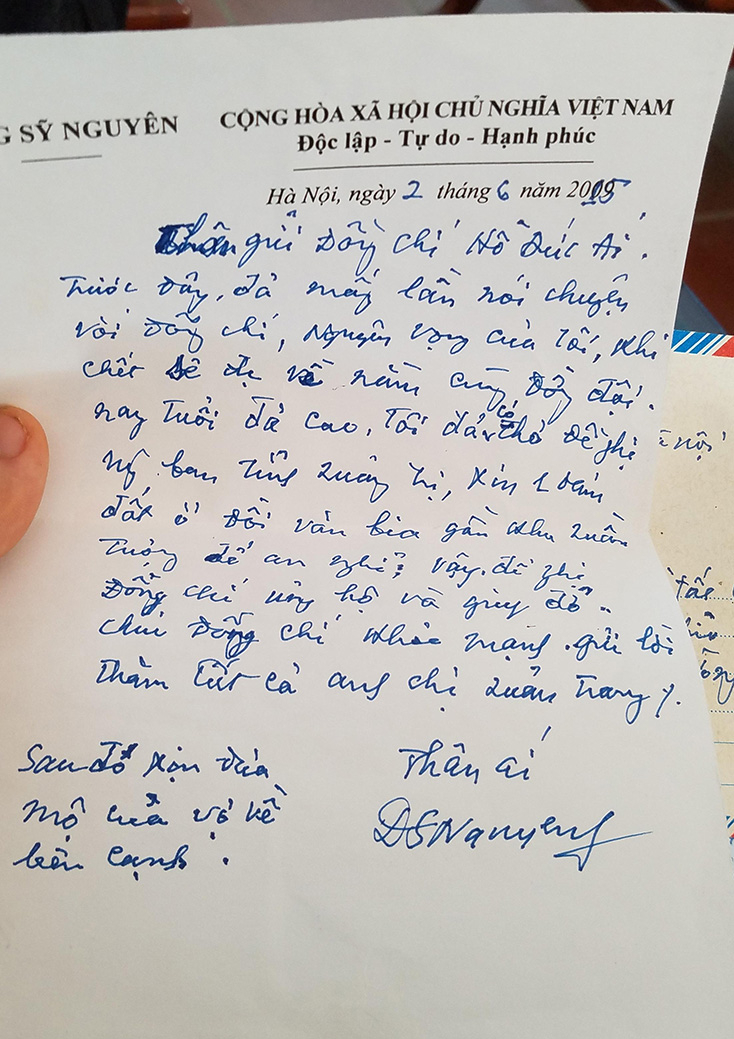 G SỸ NGUYÊN
CỘNG HÒA XÃ HỘI CHỦ NGHĨA VIỆT NAM
Độc lập - Tự do - Hạnh phúc
Hà Nội, ngày 2 tháng 6 năm 2015
Thân gửi Đồng chí Hồ Đức Ái.
Trước đây, đã mấy lần nói chuyện
với đồng chí, nguyện vọng của tôi, khi
chết sẽ đu về nằm cùng đồng đội.
nay tuổi đã cao, tôi đã có thơ đề nghị
Uỷ ban tỉnh Quảng Trị, xin 1 đám
đất ở đồi văn bia gần khu Quân
tượng để an nghỉ; vậy đề nghị
Đồng chí ủng hộ và giúp đỡ.
chúc đồng chí khỏe mạnh. gửi lời
thăm tất cả anh chị quản trang
Sau đó xin đưa
mộ của vợ về
bên cạnh.
Thân ái
DSNguyen